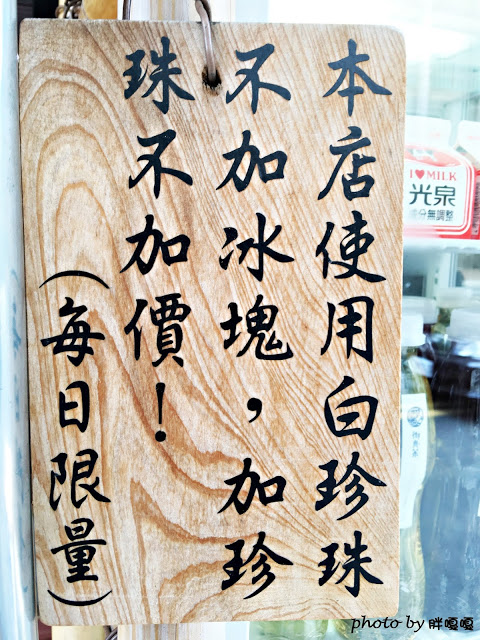 本店使用白珍珠
不加冰塊，加珍
珠不加價！
（每日限量）
I❤MILK
光泉
成分無調整
photo by 胖嘎嘎